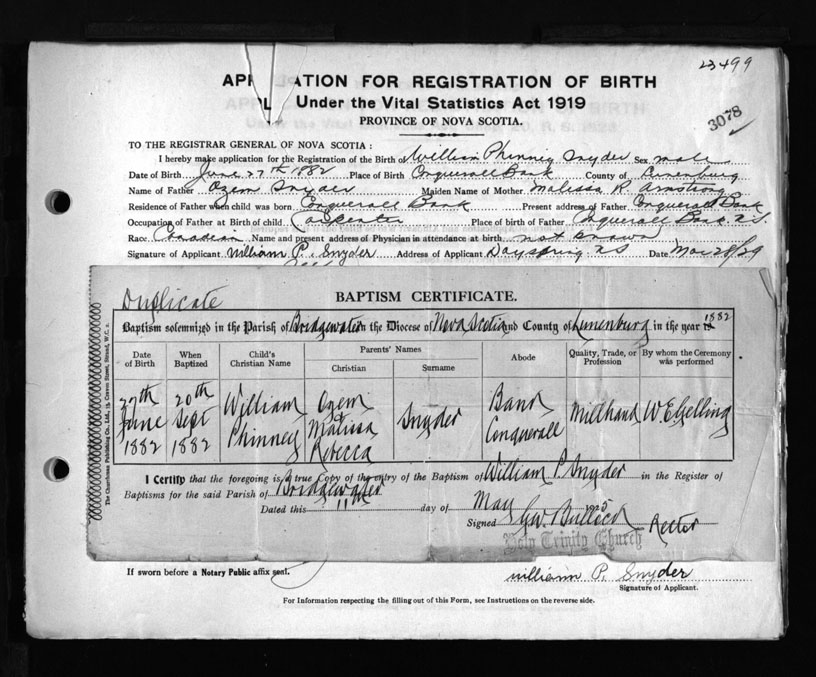 23499
APPLICATION FOR REGISTRATION OF BIRTH
Under the Vital Statistics Act 1919
PROVINCE OF NOVA SCOTIA.
3078
TO THE REGISTRAR GENERAL OF NOVA SCOTIA:
I hereby make application for the Registration of the Birth of William Phinney Snyder Sex male
Date of Birth June 27th 1882 Place of Birth Conquerall Bank County of Lunenburg
Name of Father Ozem Snyder Maiden Name of Mother Malissa R. Armstrong
Residence of Father when child was born Conquerall Bank Present address of Father Conquerall Bank
Occupation of Father at Birth of child Carpenter Place of birth of Father Conquerall Bank N.S.
Race Canadian Name and present address of Physician in attendance at birth not known
Signature of Applicant William P. Snyder Address of Applicant Dayspring N S Date Mar 28/29
Duplicate
BAPTISM CERTIFICATE.
Baptism solemnized in the Parish of Bridgewater in the Diocese of Nova Scotia and County of Lunenburg in the year 1882
Date of Birth When Baptized Child's Christian Name Parents' Names Christian Surname Abode Quality, Trade, or Profession By whom the Ceremony was performed
27th June 1882 20th Sept 1882 William Phinney Ozem Malissa Rebecca Snyder Bank Conquerall Millhand W. E. Gelling
I Certify that the foregoing is a true Copy of the entry of the Baptism of William P. Snyder in the Register of
Baptisms for the said Parish of Bridgewater
Dated this 11th day of May
Signed G.W. Bullock Rector
Holy Trinity Church
The Churchman Publishing Co., Ltd., Strand, W.C. 2.
If sworn before a Notary Public affix seal.
William P. Snyder
Signature of Applicant.
For Information respecting the filling out of this Form, see Instructions on the reverse side.